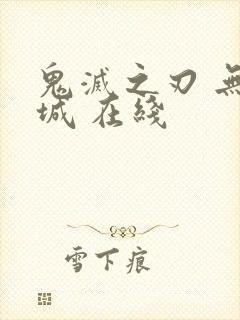 鬼滅之刃 無
城 在綫
雪下痕